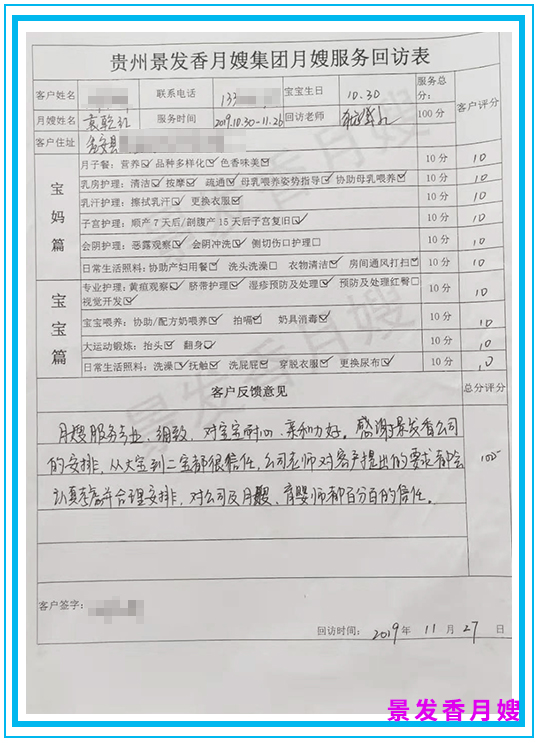 贵州景发香月嫂集团月嫂服务回访表
客户姓名 联系电话 133 宝宝生日 10.30 服务总分： 客户评分
月嫂姓名 袁 服务时间 2019.10.30-11.26 回访老师 100分
客户住址 县
宝妈篇
月子餐：营养☑ 品种多样化☑ 色香味美☑ 10分 10
乳房护理：清洁☑ 按摩☑ 疏通☑ 母乳喂养姿势指导☑ 协助母乳喂养☑ 10分 10
乳汗护理：擦拭乳汗☑ 更换衣服☑ 10分 10
子宫护理：顺产7天后/剖腹产15天后子宫复旧☑ 10分 10
会阴护理：恶露观察☑ 会阴冲洗☑ 侧切伤口护理□ 10分 10
日常生活照料：协助产妇用餐☑ 洗头洗澡□ 衣物清洁☑ 房间通风打扫☑ 10分 10
宝宝篇
专业护理：黄疸观察☑ 脐带护理☑ 湿疹预防及处理☑ 预防及处理红臀□
视觉开发☑ 10分 10
宝宝喂养：协助/配方奶喂养☑ 拍嗝☑ 奶具消毒☑ 10分 10
大运动锻炼：抬头☑ 翻身☑ 10分 10
日常生活照料：洗澡☑ 抚触☑ 洗屁屁☑ 穿脱衣服☑ 更换尿布☑ 10分 10
客户反馈意见 总分评分
月嫂服务专业、细致、对宝宝耐心、亲和力好。感谢景发香公司
的安排，从大宝到二宝都很信任，公司老师对客户提出的要求都会
认真考虑并合理安排，对公司及月嫂、育婴师都百分百的信任。
客户签字：
回访时间： 2019年 11月 27日
景发香月嫂